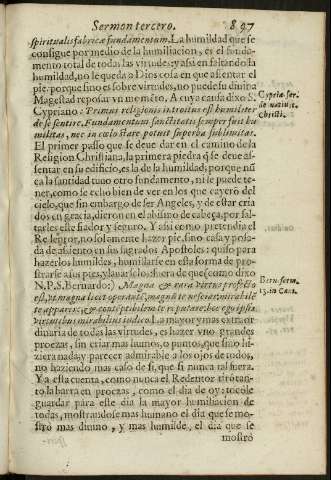 Sermon tercero. 897
spiritualis fabricæ fundamentum. La humildad que se
consigue por medio de la humiliacion, es el funda-
mento total de todas las virtudes: y assi en faltando la
humildad, no le queda a Dios cosa en que assentar el
pie: porque sino es sobre virtudes, no puede su divina
Magestad reposar vn momēto. A cuya causa dixo S.
Cypriano: Primus religionis introitus est humiliter
de se sentire. Fundamentum sanctitatis semper fuit hu
militas, nec in cœlo stare potuit superba sublimitas.
Cypria. ser.
de nativit.
Christi.
El primer passo que se deve dar en el camino de la
Religion Christiana, la primera piedra q̄ se deve as-
sentar en su edificio, es la de la humildad: porque nū
ca la santidad tuvo otro fundamento, ni le puede te-
ner, como se echo bien de ver en los que cayerō del
cielo, que sin embargo de ser Angeles, y de estar cria
dos en gracia, dieron en el abismo de cabeça, por fal-
tarles este fiador y seguro. Y assi como pretendia el
Redētor, no solamente hazer pie, sino casa y posa-
da de assiento en sus sagrados Apostoles: quiso para
hazerlos humildes, humillarse en esta forma de pro-
strarse a sus pies, y lavarselos: fuera de que (como dixo
N.P.S. Bernardo:) Magna & rara virtus profecto
est, vt magna licet operantē, magnū te nescias: mirabilē
te apparere, & contemptibilem te reputare: hoc ego ipsis
virtutibus mirabilius iudico. La mayor y mas extraor
Bern. serm.
13. in Cant.
dinaria de todas las virtudes, es hazer vno grandes
proezas, sin criar mas humos, o puntos, que sino hi-
ziera nada: y parecer admirable a los ojos de todos,
no haziendo mas caso de si, que si nunca tal fuera.
Y a esta cuenta, como nunca el Redentor tirò tan-
to la barra en proezas, como el dia de oy: tocole
guardar para este dia la mayor humiliacion de
todas, mostrandose mas humano el dia que se mo-
strò mas divino, y mas humilde, el dia que se
mostrò